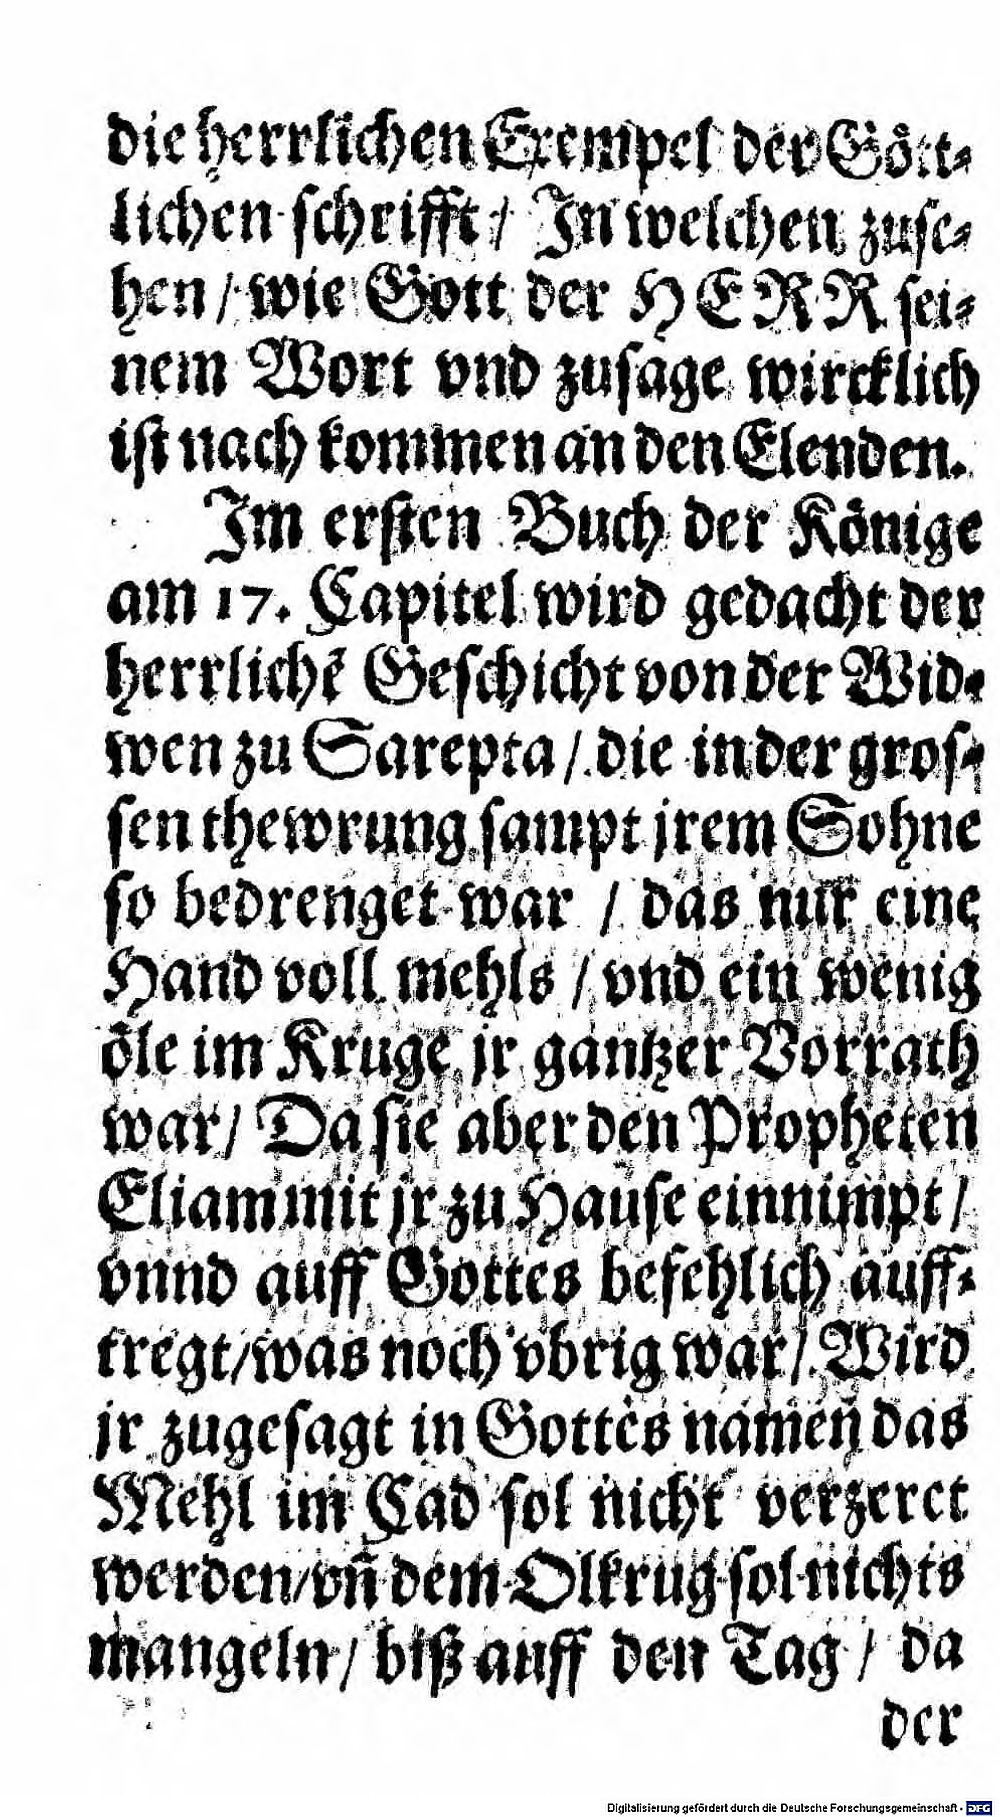 die herrlichen Exempel der Gött⸗
lichen schrifft / In welchen zuse⸗
hen / wie Gott der HERR sei⸗
nem Wort vnd zusage wircklich
ist nach kommen an den Elenden.
Im ersten Buch der Könige
am 17. Capitel wird gedacht der
herrlichē Geschicht von der Wid⸗
wen zu Sarepta / die in der gros⸗
sen thewrung sampt jrem Sohne
so bedrenget war / das nur eine
Hand voll mehls / vnd ein wenig
öle im Kruge jr gantzer Vorrath
war / Da sie aber den Propheten
Eliam mit jr zu Hause einnimpt /
vnnd auff Gottes befehlich auff⸗
tregt / was noch vbrig war / Wird
jr zugesagt in Gottes namen das
Mehl im Cad sol nicht verzeret
werden / vñ dem Olkrug sol nichts
mangeln / biß auff den Tag / da
der
Digitalisierung gefördert durch die Deutsche Forschungsgemeinschaft - DFG